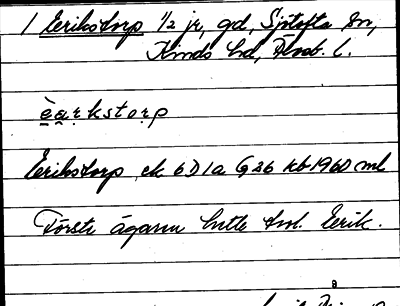 1 Eerikstorp 1/2 jr, gd, Sjötofta sn,
Kinds hd, Älvsb. l.
è̱a̱ṛkstoṛp
Eerikstorp ek 6D1a G26 kb 1960 ml
Förste ägaren hette trol. Eerik.